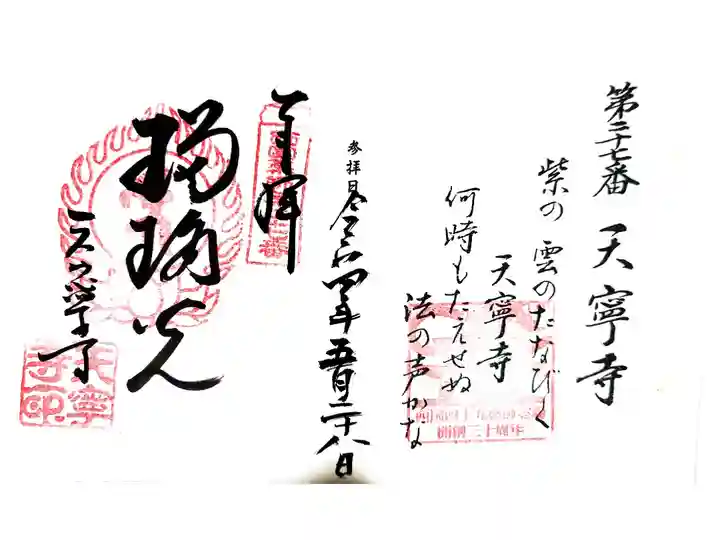 第二十七番 天寧寺
紫の雲のたなびく
天寧寺
何時もたえせぬ
法の声かな
参拝日 令和四年五月二十八日
奉拝
瑠璃光
天寧寺
天寧
寺印